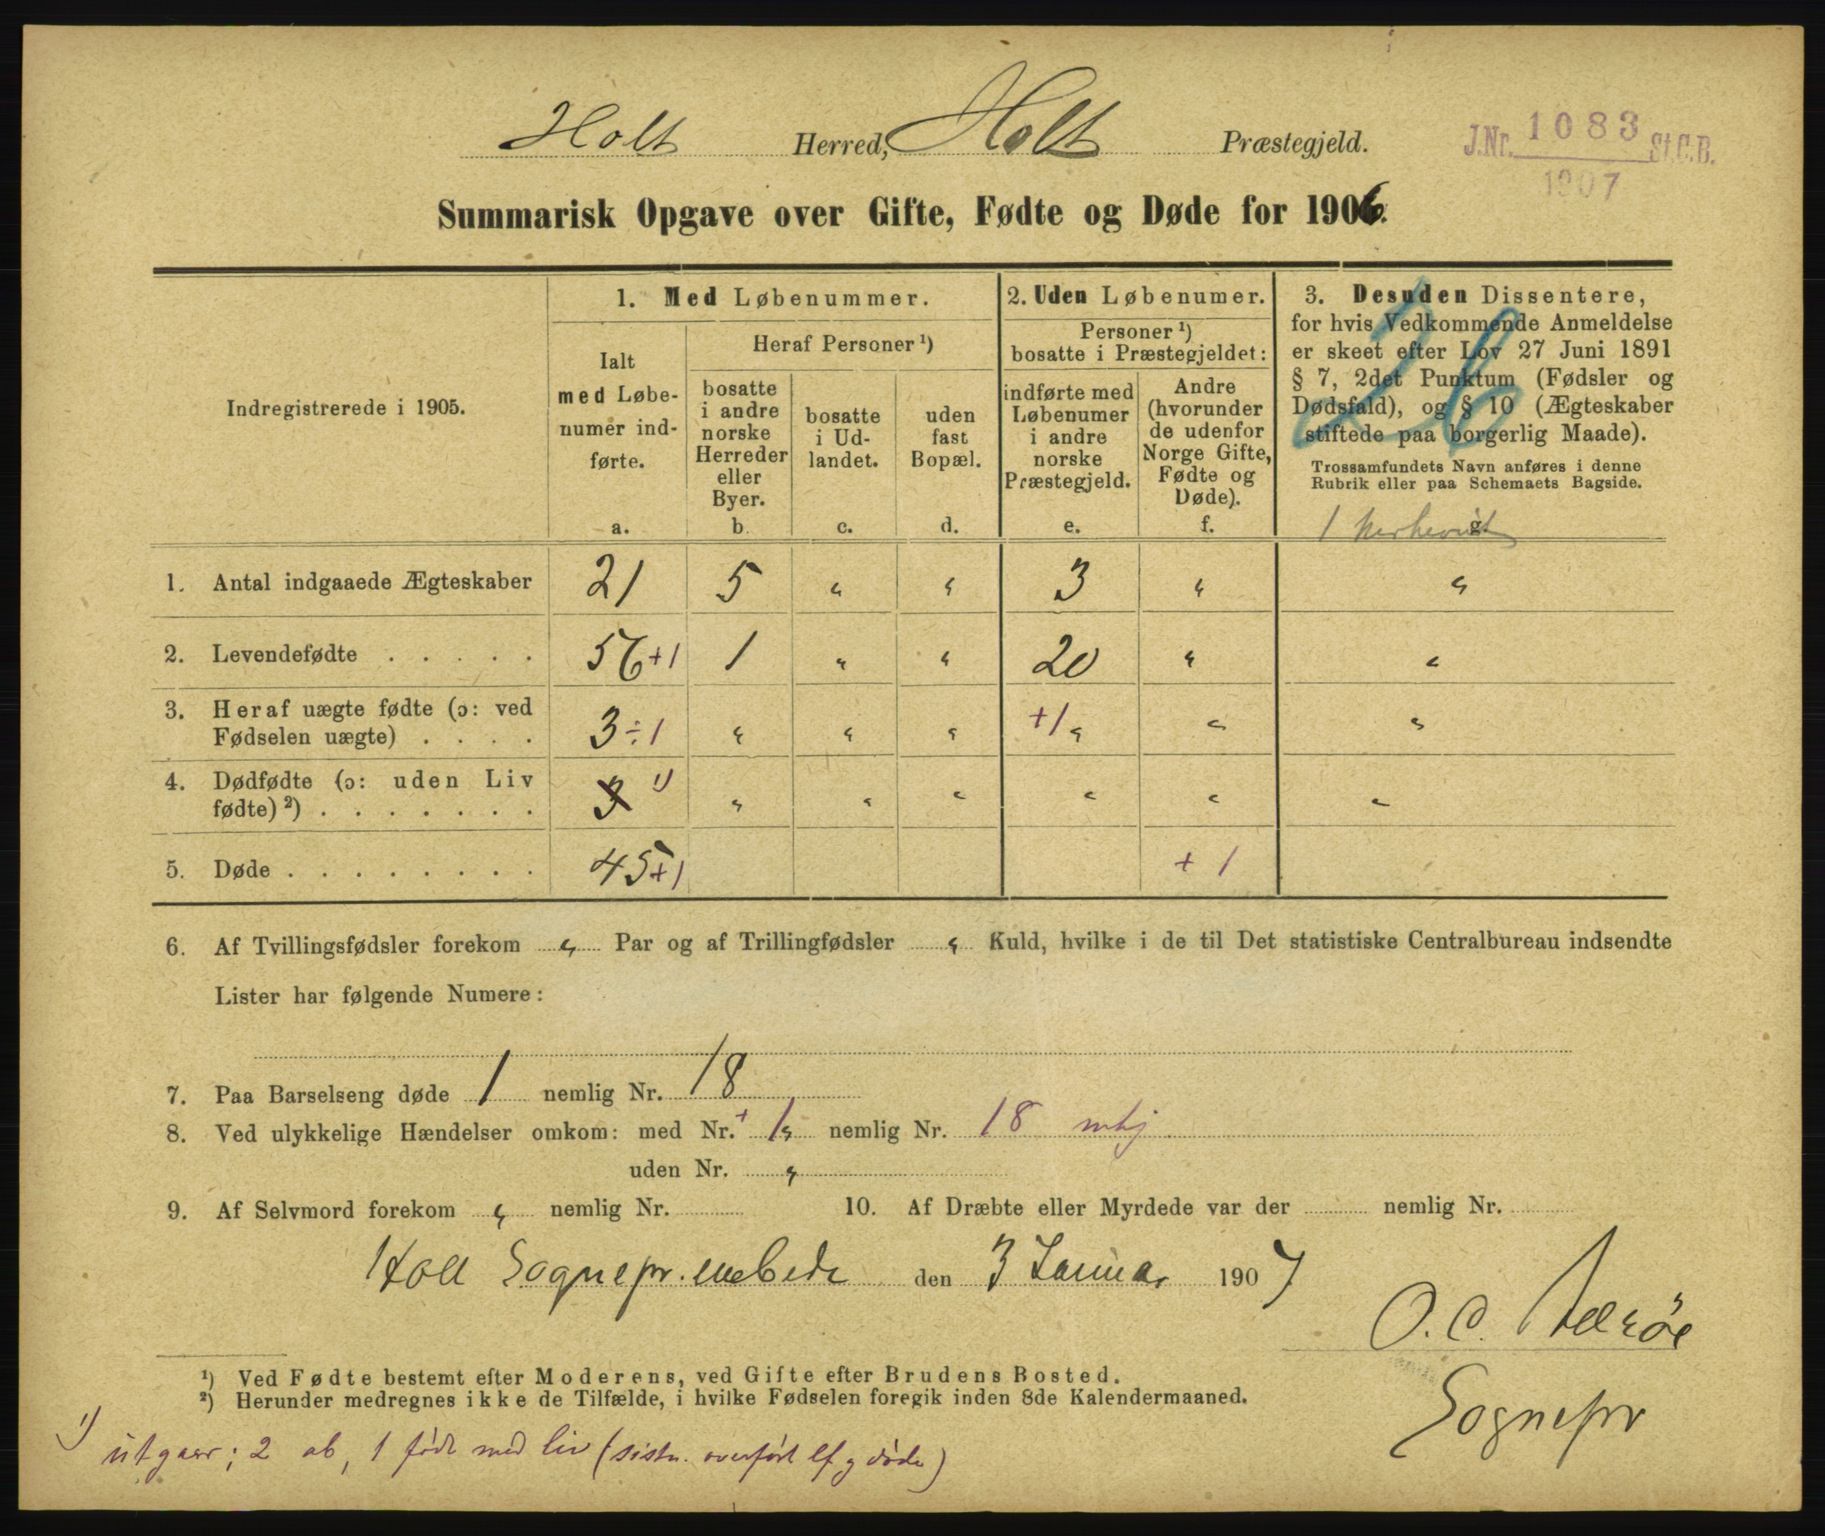 Holt Herred, Holt Præstegjeld.
J.Nr. 1083 St.C.B.
1907
Summarisk Opgave over Gifte, Fødte og Døde for 1906.
26
Indregistrerede i 1905.
1. Med Løbenummer.
Ialt
med Løbe-
numer ind-
førte.
a.
Heraf Personer ¹)
bosatte
i andre
norske
Herreder
eller
Byer.
b.
bosatte
i Ud-
landet.
c.
uden
fast
Bopæl.
d.
2. Uden Løbenumer.
Personer ¹)
bosatte i Præstegjeldet:
indførte med
Løbenumer
i andre
norske
Præstegjeld.
e.
Andre
(hvorunder
de udenfor
Norge Gifte,
Fødte og
Døde).
f.
3. Desuden Dissentere,
for hvis Vedkommende Anmeldelse
er skeet efter Lov 27 Juni 1891
§ 7, 2det Punktum (Fødsler og
Dødsfald), og § 10 (Ægteskaber
stiftede paa borgerlig Maade).
Trossamfundets Navn anføres i denne
Rubrik eller paa Schemaets Bagside.
g.
1. Antal indgaaede Ægteskaber 21 5 " " 3 " "
2. Levendefødte . . . . . 56+1 1 " " 20 " "
3. Heraf uægte fødte (ɔ: ved
Fødselen uægte) . . . . 3÷1 " " " +1 " " "
4. Dødfødte (ɔ: uden Liv
fødte) ²) . . . . . . . 3 ¹) " " " " " "
5. Døde . . . . . . . . 45+1 +1
6. Af Tvillingsfødsler forekom " Par og af Trillingfødsler " Kuld, hvilke i de til Det statistiske Centralbureau indsendte
Lister har følgende Numere:
7. Paa Barselseng døde 1 nemlig Nr. 18
8. Ved ulykkelige Hændelser omkom: med Nr. +1 " nemlig Nr. 18 mkj
uden Nr. "
9. Af Selvmord forekom " nemlig Nr.
10. Af Dræbte eller Myrdede var der nemlig Nr.
Holt Sognepr.embede den 3 Januar 1907
O. C.
Sognepr
¹) Ved Fødte bestemt efter Moderens, ved Gifte efter Brudens Bosted.
²) Herunder medregnes ikke de Tilfælde, i hvilke Fødselen foregik inden 8de Kalendermaaned.
¹) utgaar; 2 ab, 1 født med liv (sistn. overført lf og døde)